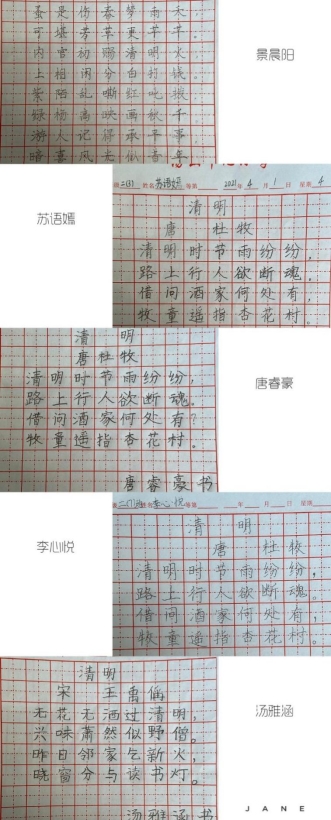 蚤是伤春梦雨天
可堪芳草更芊芊。
内官初赐清明火
上相闲分白打钱。
紫陌乱嘶红叱拨
绿杨高映画秋千
游人记得承平事
暗喜风光似昔年
景晨阳
苏语嫣
二(3) 姓名 苏语嫣 等第 2021年 4月 1日 星期 4
清明
唐 杜牧
清明时节雨纷纷,
路上行人欲断魂。
借问酒家何处有,
牧童遥指杏花村。
清明
唐杜牧
清明时节雨纷纷,
路上行人欲断魂。
借问酒家何处有?
牧童遥指杏花村。
唐睿豪书
唐睿豪
李心悦
姓名 李心悦 等第 年 月 日 星期
清明
唐 杜牧
清明时节雨纷纷,
路上行人欲断魂。
借问酒家何处有,
牧童遥指杏花村。
清明
宋 王禹偁
无花无酒过清明,
兴味萧然似野僧。
昨日邻家乞新火,
晓窗分与读书灯。
汤雅涵书
汤雅涵
JANE